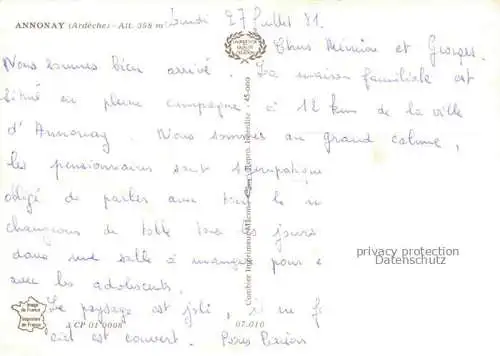 ANNONAY (Ardèche) - Alt. 358 m
Lundi 27 Juillet 81.
Chers Mémian et Georges.
Nous sommes bien arrivé. La maison familiale est
situé en pleine campagne à 12 km de la ville
d'Annonay. Nous sommes au grand calme,
les pensionnaires sont sympatique
obligé de parler avec
changeons de table tous les jours
dans une salle à manger pour
avec les adolescents.
Le paysage est joli, il ne f
ciel est couvert.
Combier Imprimeur Mâcon
privacy protection
Datenschutz
Image de France
Imprimeur de France
CP 01 0008
07.010